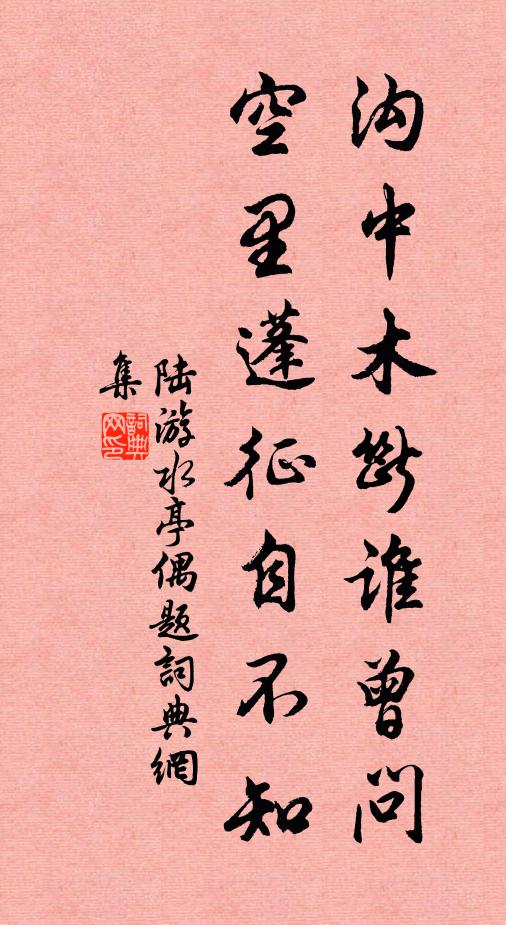 沟中木斷谁曾问
空里蓬征自不知
陆游水亭偶题詞典網
集
詞典
网印